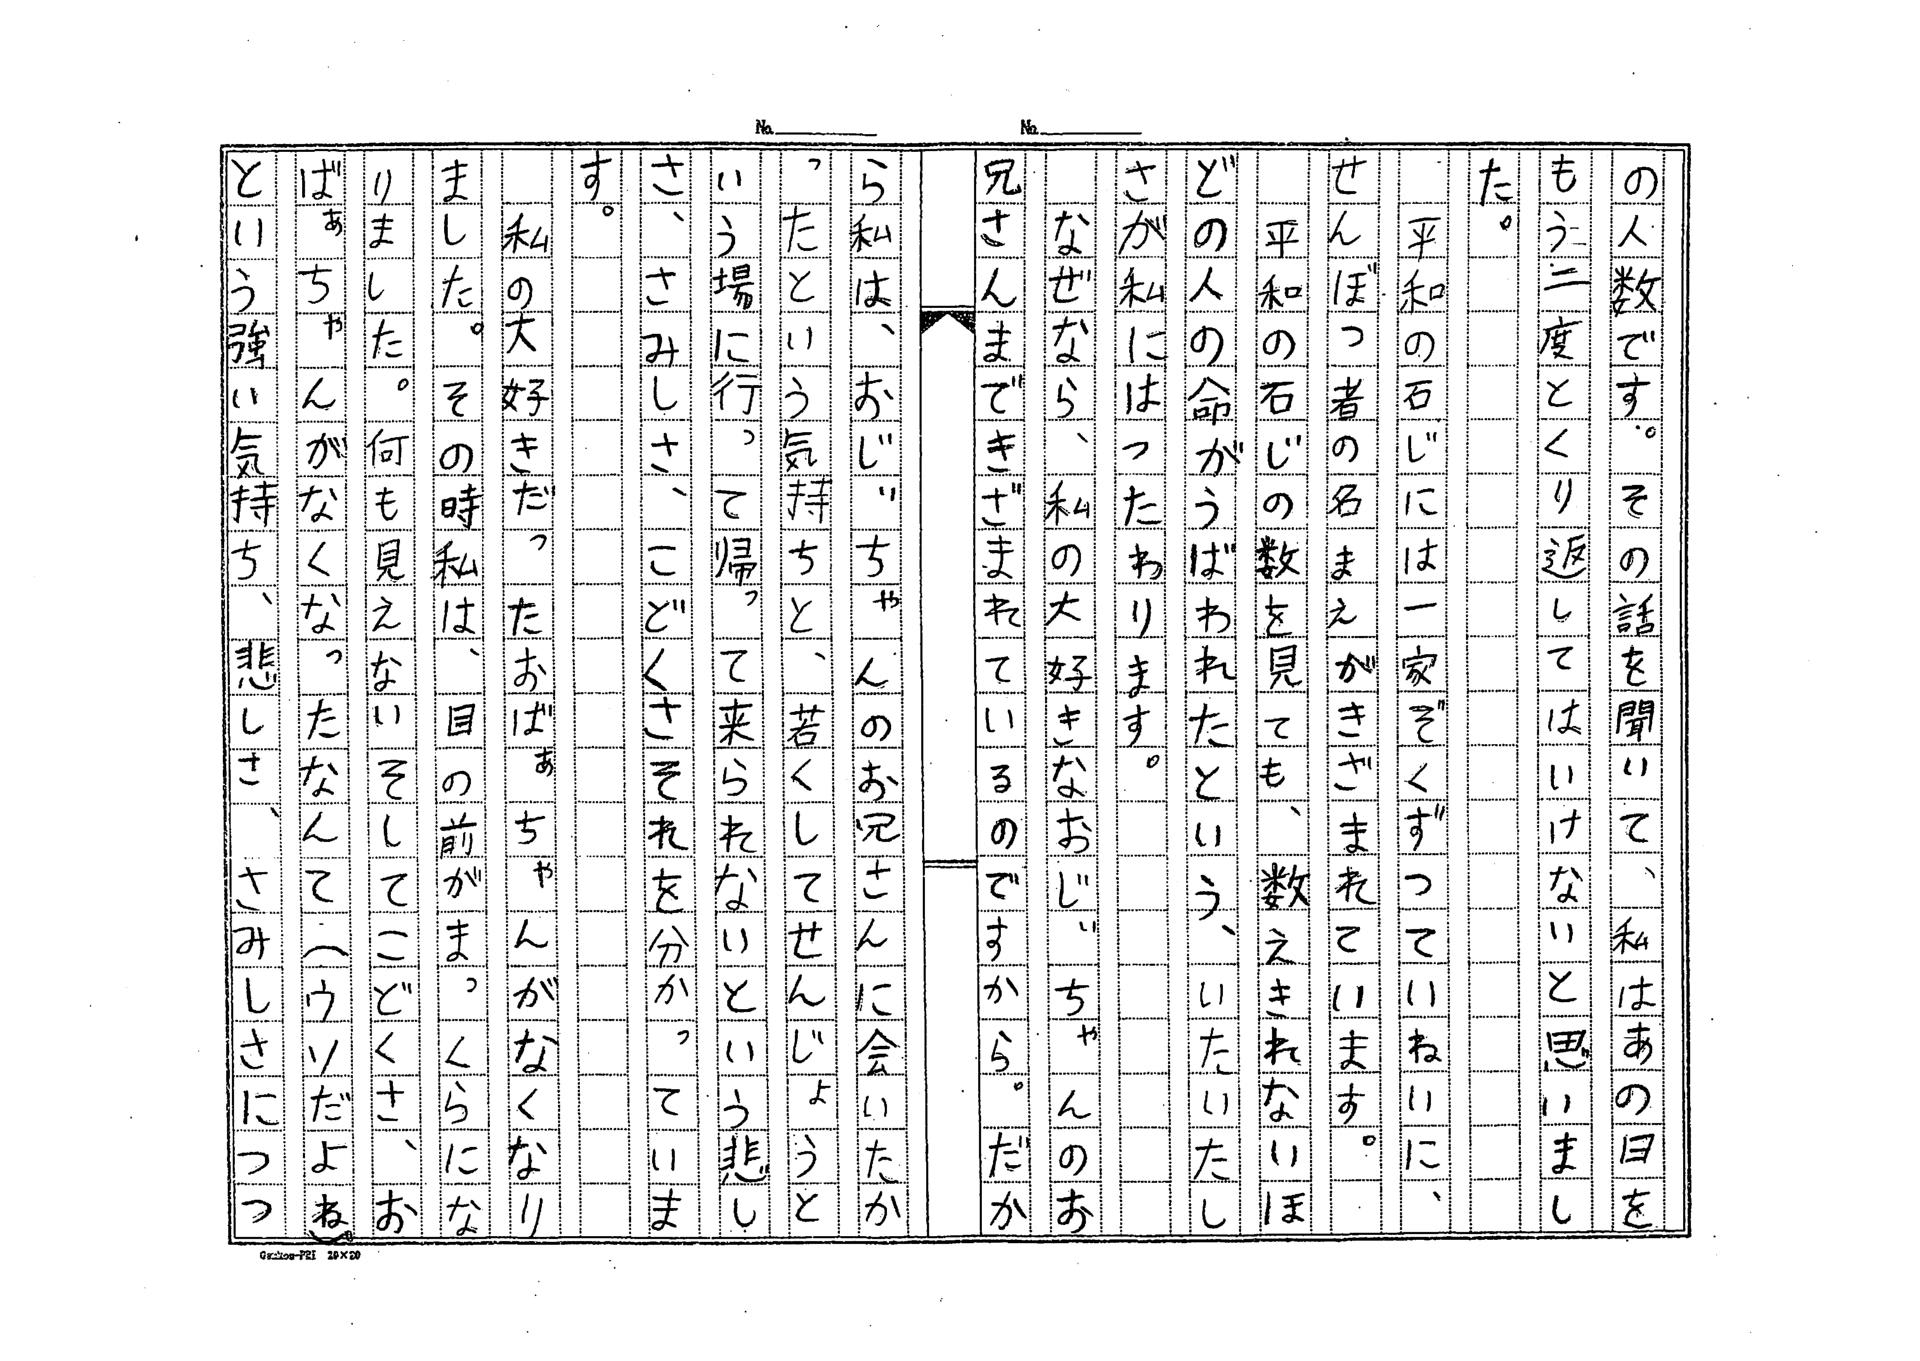 No.
No.
の人数です。その話を聞いて、私はあの日を
もう二度とくり返してはいけないと思いまし
た。
平和の石じには一家ぞくずつていねいに、
せんぼつ者の名まえがきざまれています。
平和の石じの数を見ても、数えきれないほ
どの人の命がうばわれたという、いたいたし
さが私にはつたわります。
なぜなら、私の大好きなおじぃちゃんのお
兄さんまできざまれているのですから。だか
ら私は、おじぃちゃんのお兄さんに会いたか
ったという気持ちと、若くしてせんじょうと
いう場に行って帰って来られないという悲し
さ、さみしさ、こどくさそれを分かっていま
す。
私の大好きだったおばぁちゃんがなくなり
ました。その時私は、目の前がまっくらにな
りました。何も見えないそしてこどくさ、お
ばぁちゃんがなくなったなんて(ウソだよね)
という強い気持ち、悲しさ、さみしさにつつ
20×20